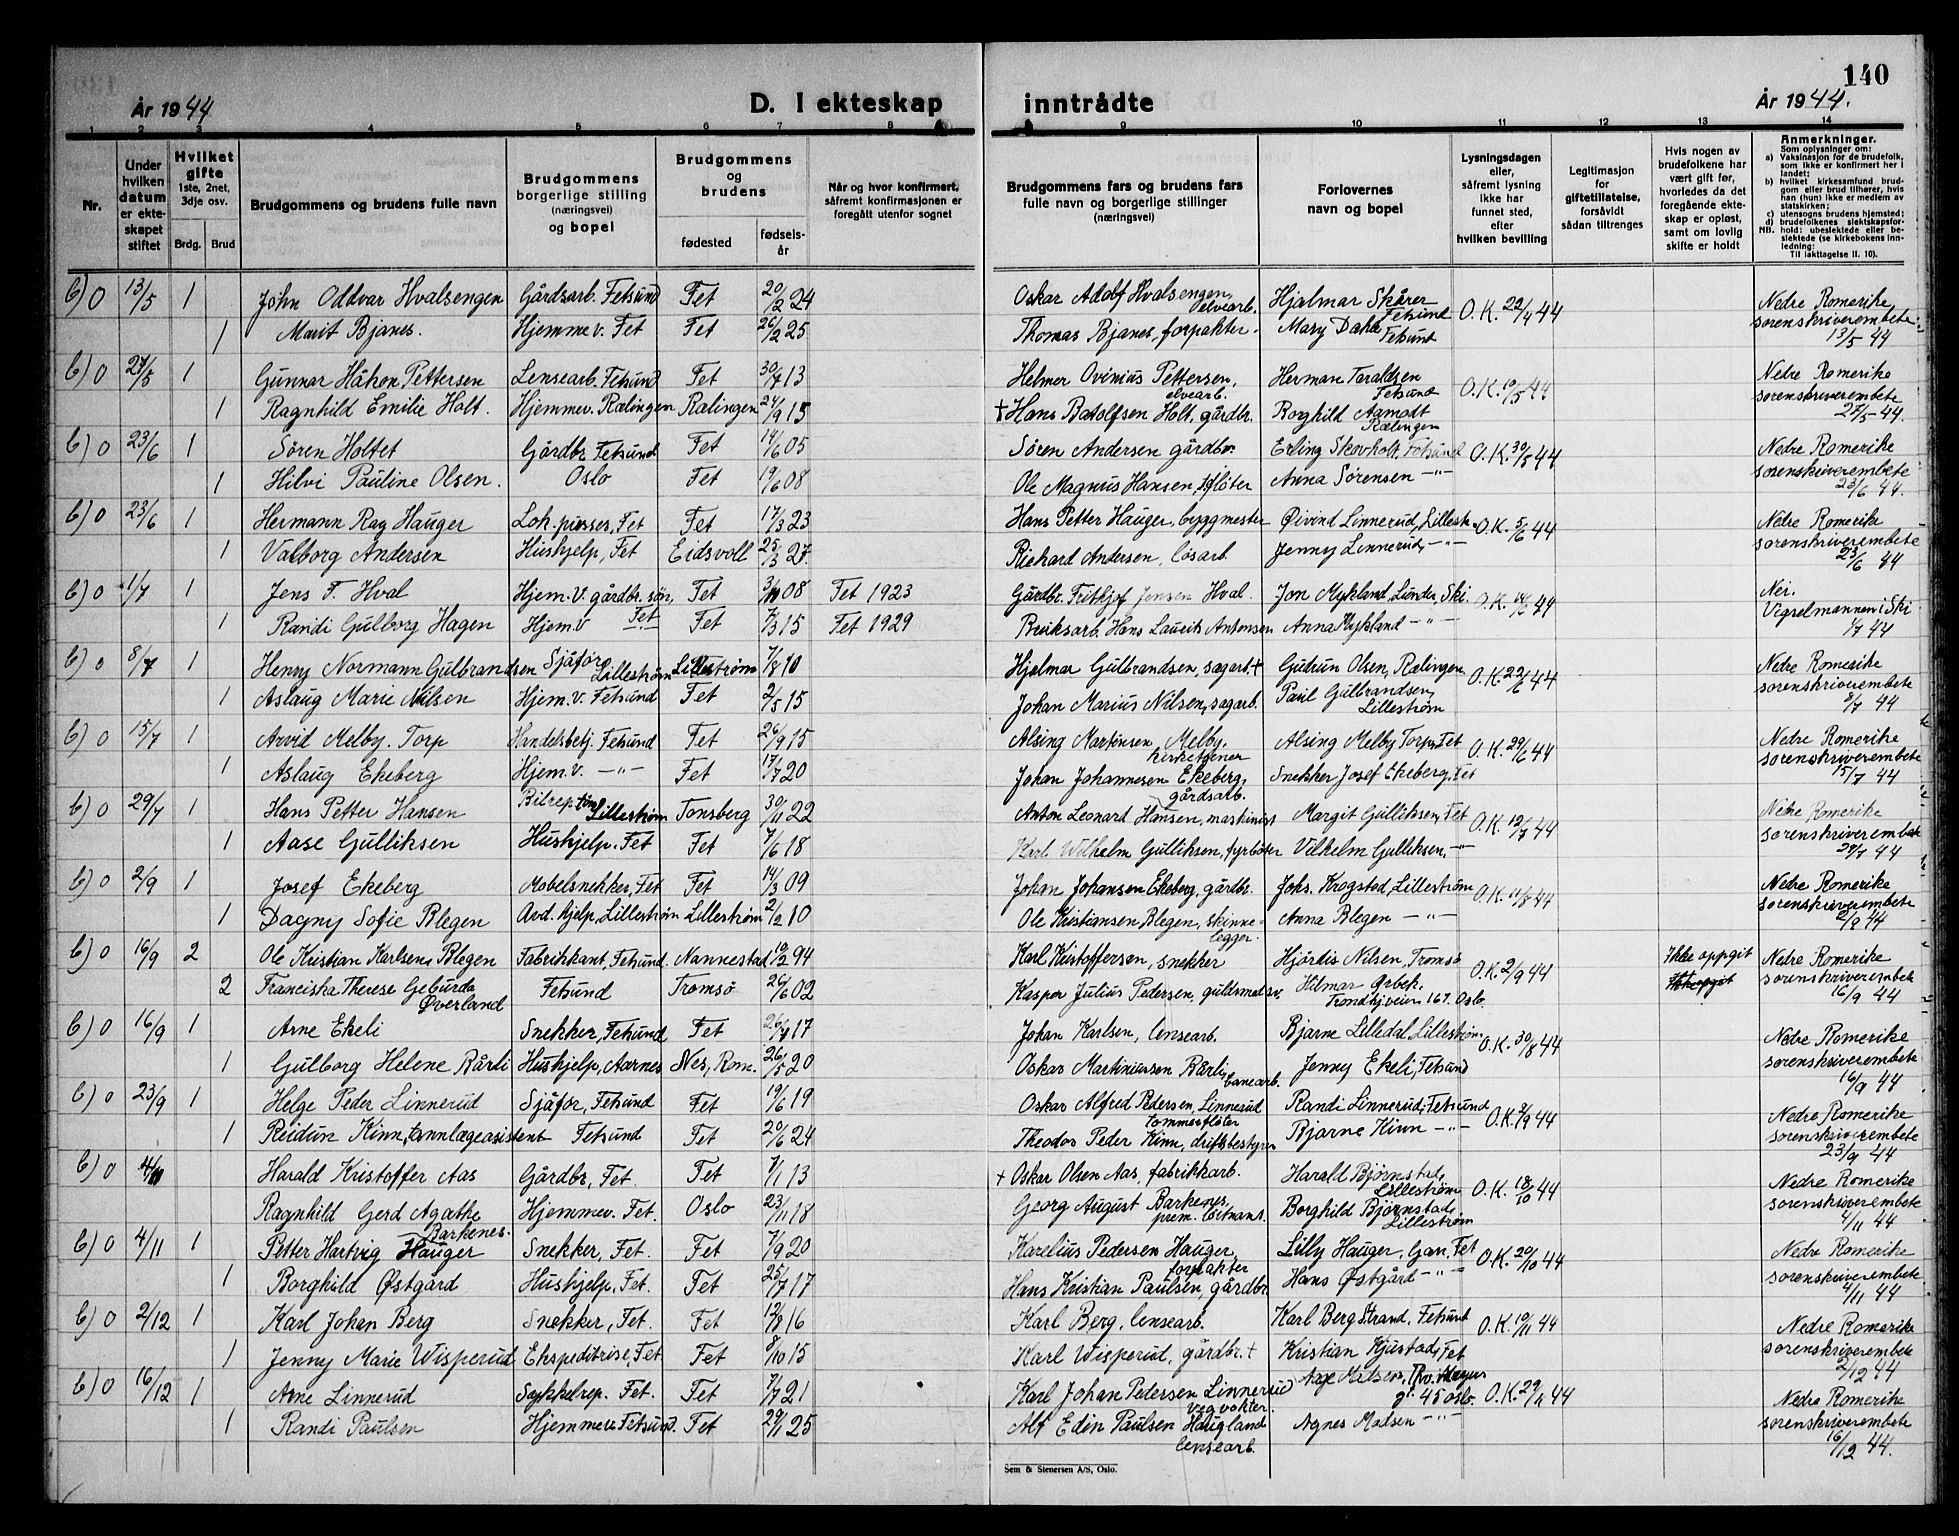 140
År 1944
D. I ekteskap inntrådte
År 1944.
1 2 3 4 5 6 7 8 9 10 11 12 13 14
Nr.
Under hvilken datum er ekteskapet stiftet
Hvilket gifte 1ste, 2net, 3dje osv.
Brdg. Brud
Brudgommens og brudens fulle navn
Brudgommens borgerlige stilling (næringsvei) og bopel
Brudgommens og brudens
fødested
fødselsår
Når og hvor konfirmert, såfremt konfirmasjonen er foregått utenfor sognet
Brudgommens fars og brudens fars fulle navn og borgerlige stillinger (næringsvei)
Forlovernes navn og bopel
Lysningsdagen eller, såfremt lysning ikke har funnet sted, efter hvilken bevilling
Legitimasjon for giftetillatelse, forsåvidt sådan tiltrenges
Hvis nogen av brudefolkene har vært gift før, hvorledes da det foregående ekteskap er opløst, samt om lovlig skifte er holdt
Anmerkninger.
Som oplysninger om:
a) Vaksinasjon for de brudefolk, som ikke er konfirmert her i landet;
b) hvilket kirkesamfund brudgom eller brud tilhører, hvis han (hun) ikke er medlem av statskirken;
c) utensogns brudens hjemsted;
d) brudefolkenes slektskapsforhold: ubeslektede eller beslektede (se kirkebokens innledning;
NB.
Til iakttagelse II. 10).
b) 0 13/5 1 John Oddvar Hvalsengen Gårdsarb. Fetsund Fet 20/2 24 Oskar Adolf Hvalsengen, elvearb. Hjalmar Skårer Fetsund O.K. 22/4 44 Nedre Romerike
1 Marit Bjanes. Hjemmev. Fet Fet 26/2 25 Thomas Bjanes, forpakter Mary Dahl Fetsund sorenskriverembete 13/5 44
b) 0 27/5 1 Gunnar Håkon Pettersen Lensearb. Fetsund Fet 30/7 13 Helmer Ovenius Pettersen, elvearb. Herman Taraldsen Fetsund O.K. 10/5 44 Nedre Romerike
1 Ragnhild Emilie Holt. Hjemmev. Rælingen Rælingen 24/9 15 + Hans Batolfsen Holt, gårdbr. Borghild Aamodt Rælingen sorenskriverembete 27/5-44.
b) 0 23/6 1 Søren Holtet Gårdbr. Fetsund Fet 14/6 05 Søren Andersen gårdbr. Erling Skovholt, Fetsund O.K. 30/5 44 Nedre Romerike
1 Hilvi Pauline Olsen. Oslo Fet 19/6 08 Ole Magnus Hansen, fløter Anna Sørensen -"- sorenskriverembete 23/6 44.
b) 0 23/6 1 Hermann Ray Hauger Lok.pusser, Fet Fet 17/3 23 Hans Petter Hauger, byggmester Øivind Linnerud, Lillestr. O.K. 5/6 44 Nedre Romerike
1 Valborg Andersen Hushjelp, Fet Eidsvoll 25/3 27. Richard Andersen, løsarb Jenny Linnerud, -"- sorenskriverembete 23/6 44
b) 0 1/7 1 Jens F. Hval Hjem.v. gårdbr. søn, Fet Fet 08 Fet 1923 Gårdbr. Fritkjof Jensen Hval. Jon Mykland, Lunder, Ski. O.K. 44 Nei.
1 Randi Gulborg Hagen Hjem.v -"- Fet 7/3 15 Fet 1929 Bruksarb. Hans Lauritz Antonsen Anna Mykland -"- Vigselmannen i Ski 1/7 44
b) 0 8/7 1 Henry Normann Gulbrandsen Sjåfør Lillestrøm Lillestrøm 7/8 10 Hjalmar Gulbrandsen, sagarb + Gudrun Olsen, Rælingen O.K. 22/6 44 Nedre Romerike
1 Aslaug Marie Nilsen Hjem.v. Fetsund Fet 2/5 15 Johan Marius Nilsen, sagarb. Paul Gulbrandsen, Lillestrøm sorenskriverembete 8/7 44
b) 0 15/7 1 Arvid Melby. Torp Handelsbetj. Fetsund Fet 26/9 15 Alsing Martensen Melby, kirketjener Alsing Melby Torp, Fet O.K. 29/6 44 Nedre Romerike
1 Aslaug Ekeberg Hjem.v. -"- Fet 17/7 20 Johan Johannesen Ekeberg, gårdsarb. Snekker Josef Ekeberg, Fet sorenskriverembete 15/7 44
b) 0 29/7 1 Hans Petter Hansen Bilrep.tør Lillestrøm Tønsberg 30/11 22 Anton Leonard Hansen, maskinist Margit Gulliksen, Fet O.K. 12/7 44 Nedre Romerike
1 Aase Gulliksen Hushjelp. Fet Fet 7/6 18 Karl Wilhelm Gulliksen, fyrbøter Vilhelm Gulliksen, -"- sorenskriverembete 29/7 44
b) 0 2/9 1 Josef Ekeberg Møbelsnekker, Fet Fet 14/3 09 Johan Johansen Ekeberg, gårdbr. Johs. Krogstad, Lillestrøm O.K. 11/8 44 Nedre Romerike
1 Dagny Sofie Blegen Avd. hjelp, Lillestrøm Lillestrøm 2/12 10 Ole Kristiansen Blegen, skinnelegger. Anna Blegen -"- sorenskriverembete 2/9 44
b) 0 16/9 2 Ole Kristian Karlsens Blegen Fabrikkant, Fetsund. Nannestad 10/2 94 Karl Kristoffersen, snekker Hjørdis Nilsen, Tromsø O.K. 2/9 44 Ikke oppgit Nedre Romerike
2 Franciska Therese Geburda Øverland Fetsund Tromsø 26/6 02 Kasper Julius Pedersen, guldsmedsv. Hilmar Ørbek, Trondhjveien 167. Oslo. sorenskriverembete 16/9 44
b) 0 16/9 1 Arne Ekeli Snekker, Fetsund Fet 17 Johan Karlsen, lensearb. Bjarne Lilledal, Lillestrøm O.K. 30/8 44 Nedre Romerike
1 Gulborg Helene Rårli Hushjelp, Aarnes Nes, Rom. 26/5 20 Oskar Martiniussen Rårli, banearb. Jenny Ekeli, Fetsund sorenskriverembete 16/9 44
b) 0 23/9 1 Helge Peder Linnerud Sjåfør, Fetsund Fet 19/6 19 Oskar Alfred Pedersen, Linnerud tømmerfløter Randi Linnerud, Fetsund O.K. 44 Nedre Romerike
1 Reidun Kinn, tannlægeasistent Fetsund Fet 20/6 24 Theodor Peder Kinn, driftsbestyrer Bjarne Kinn -"- sorenskriverembete 23/9 44
b) 0 Harald Kristoffer Aas Gårdbr, Fet Fet 7/1 13 + Oskar Olsen Aas, fabrikkarb. Harald Bjørnstad, Lillestrøm O.K. 18/10 44 Nedre Romerike
Ragnhild Gerd Agathe Barkenes. Hjemmev. Fet. Oslo 23/11 18 Georg August Barkenes, prem. løitnant. Borghild Bjørnstad, Lillestrøm sorenskriverembete 4/11 44
b) 0 4/11 1 Petter Hartvig Hauger Snekker, Fet. Fet 7/9 20 Karelius Pedersen Hauger, forpakter Lilly Hauger, Gan, Fet O.K. 20/10 44 Nedre Romerike
1 Borghild Østgård Hushjelp, Fet. Fet 25/7 17 Hans Kristian Paulsen, gårdbr. Hans Østgård -"- sorenskriverembete 4/11 44
b) 0 2/12 1 Karl Johan Berg Snekker, Fet. Fet 12/8 16 Karl Berg, lensearb. Karl Berg Strand, Fetsund O.K. 10/11 44 Nedre Romerike
1 Jenny Marie Wisperud Ekspeditrise, Fet. Fet 8/10 15 Karl Wisperud, gårdbr. + Kristian Kjustad, Fet sorenskriverembete 2/12 44
b) 0 16/12 1 Arne Linnerud Sykkelrep. Fet. Fet 7/7 21 Karl Johan Pedersen Linnerud vegvokter. Aage Madsen, gt 45 Oslo. O.K. 29/11 44 Nedre Romerike
1 Randi Paulsen Hjemmev. Fetsund. Fet 29/1 25 Alf Edin Paulsen Haugland lensearb. Agnes Madsen -"- sorenskriverembete 16/12 44.
Sem & Stenersen A/S, Oslo.